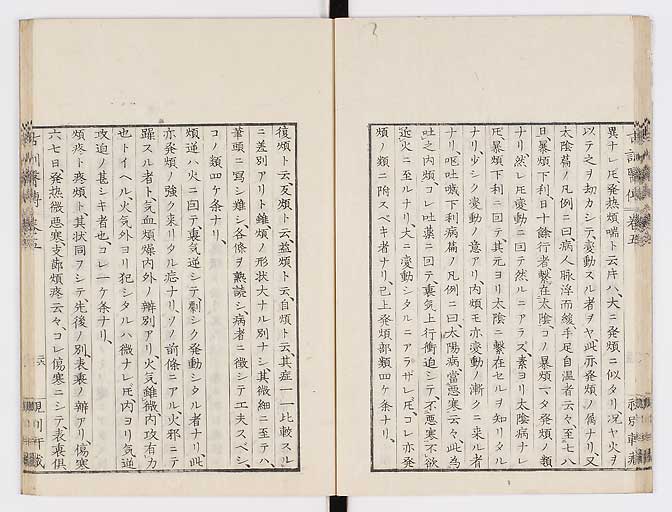 異ナレ𪜈発熱煩喘ト云片ハ大ニ発煩ニ似タリ况ヤ火ヲ
以テ之ヲ劫カシテ変動スル者ヲヤ此亦発煩ノ属ナリ又
太陰篇ノ凡例ニ曰病人脉浮而緩手足自温者云々至七八
日暴煩下利日十餘行者繫在太陰コノ暴煩マタ発煩ノ類
ナリ然レ𪜈変動ニ因テ然ルニアラス素ヨリ太陰病ナレ
𪜈暴煩下利ニ因テ其元ヨリ太陰ニ繫在セルヲ知リタル
ナリ少シク変動ノ意アリ内煩モ亦変動ノ漸クニ来ル者
ナリ嘔吐噦下利病篇ノ凡例ニ曰太陽病當悪寒云々此為
吐之内煩コレ吐薬ニ因テ裏気上行衝迫シテ不悪寒不欲
近火ニ至ルナリ大ニ変動シタルニアラザレ𪜈コレ亦発
煩ノ類ニ附スベキ者ナリ已上発煩部類四ケ条ナリ
復煩ト云反煩ト云益煩ト云自煩ト云其症一一比較スル
ニ差別アリト雖煩ノ形状大ナル別ナシ其微細ニ至テハ
筆頭ニ寫シ難シ各條ヲ熟読シ病者ニ徴シテ工夫スベシ
コノ類四ケ条ナリ
煩逆ハ火ニ因テ裏気逆シテ劇シク発動シタル者ナリ此
亦発煩ノ強ク来リタル症ナリソノ前條ニアル火邪ニテ
躁スル者ト気血煩燥内外ノ辨別アリ火気雖微内攻有力
也トイヘル火気外ヨリ犯シタルハ微ナレ𪜈内ヨリ気逆
攻迫ノ甚シキ者也コレ一ケ条ナリ
煩疼ト疼煩ト其状同フシテ先後ノ別表裏ノ辨アリ傷寒
六七日発熱微悪寒支節煩疼云々コレ傷寒ニシテ表裏俱